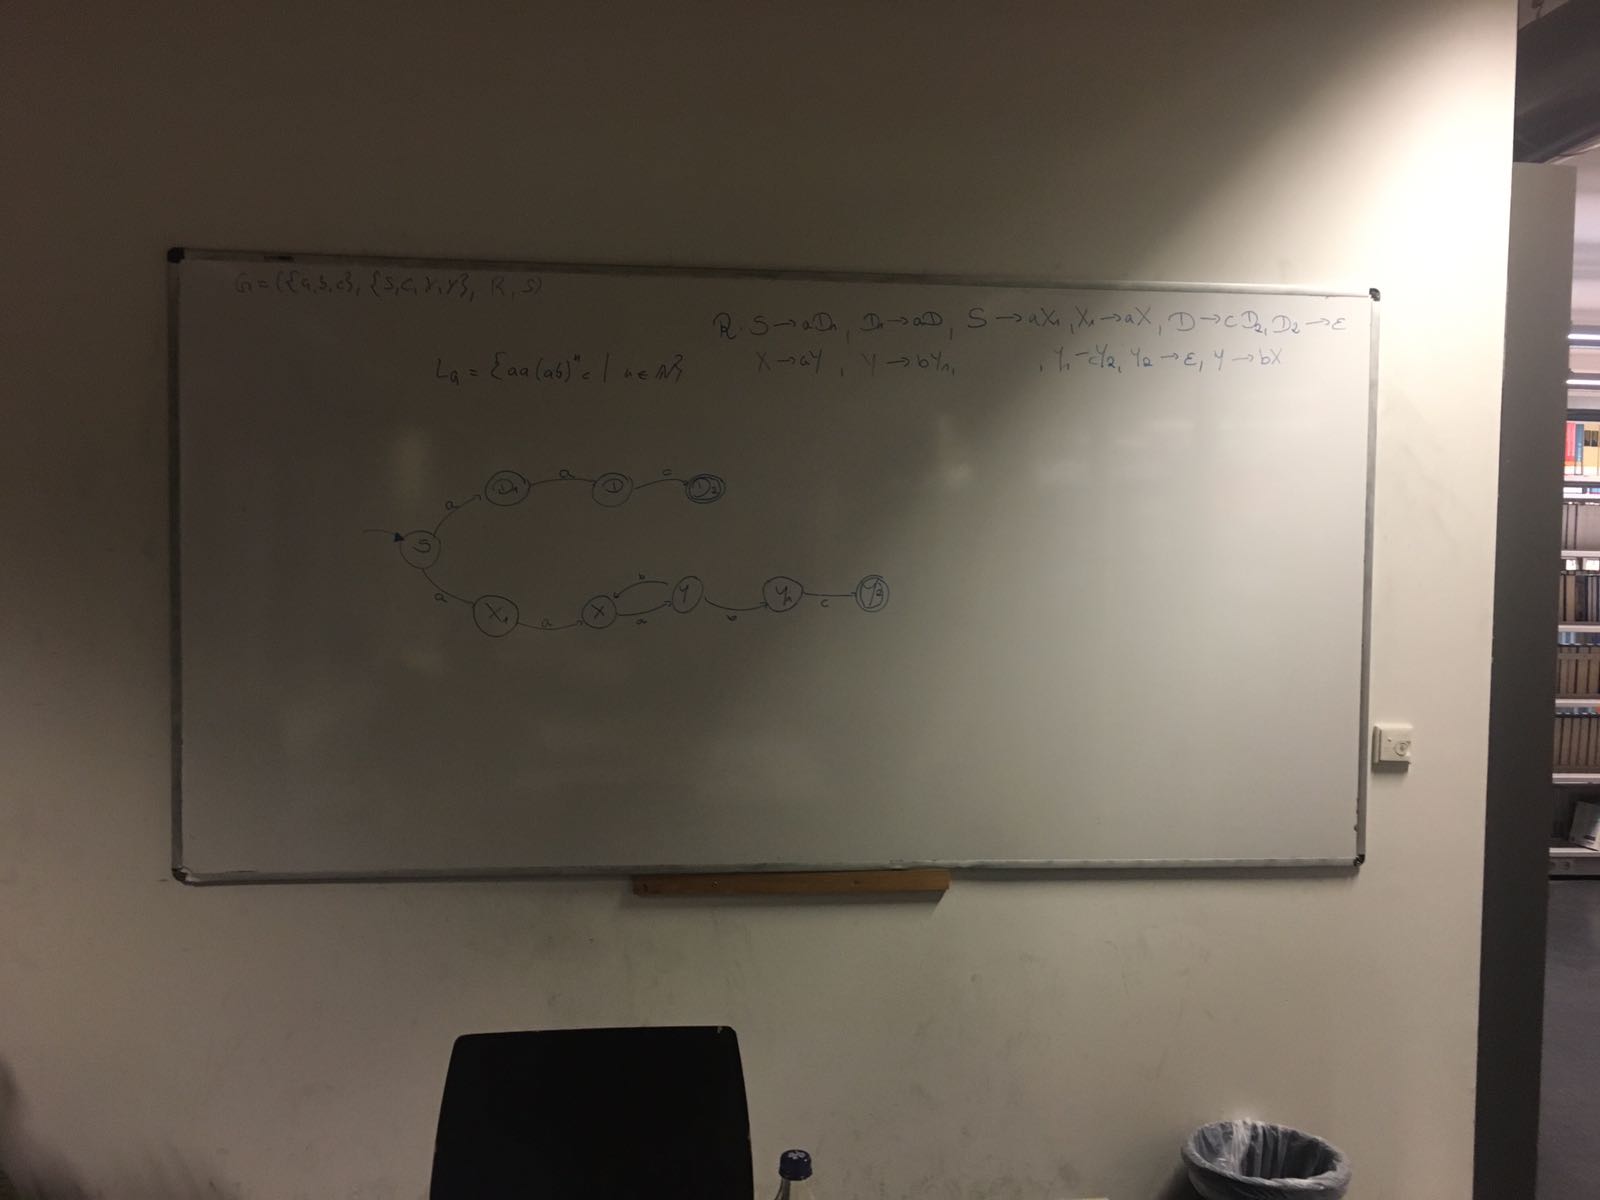 G = ({a,b,c}, {S,C,X,Y}, R, S)
R: S → aD₁, D₁ → aD, S → aX₁, X₁ → aX, D → cD₂, D₂ → ε
X → aY, Y → bY₁, , Y₁ → cY₂, Y₂ → ε, Y → bX
L_G = {aa(ab)ⁿc | n ∈ ℕ}
a a c
S D₁ D D₂
a b
X₁ X Y Y₁ Y₂
a a b c